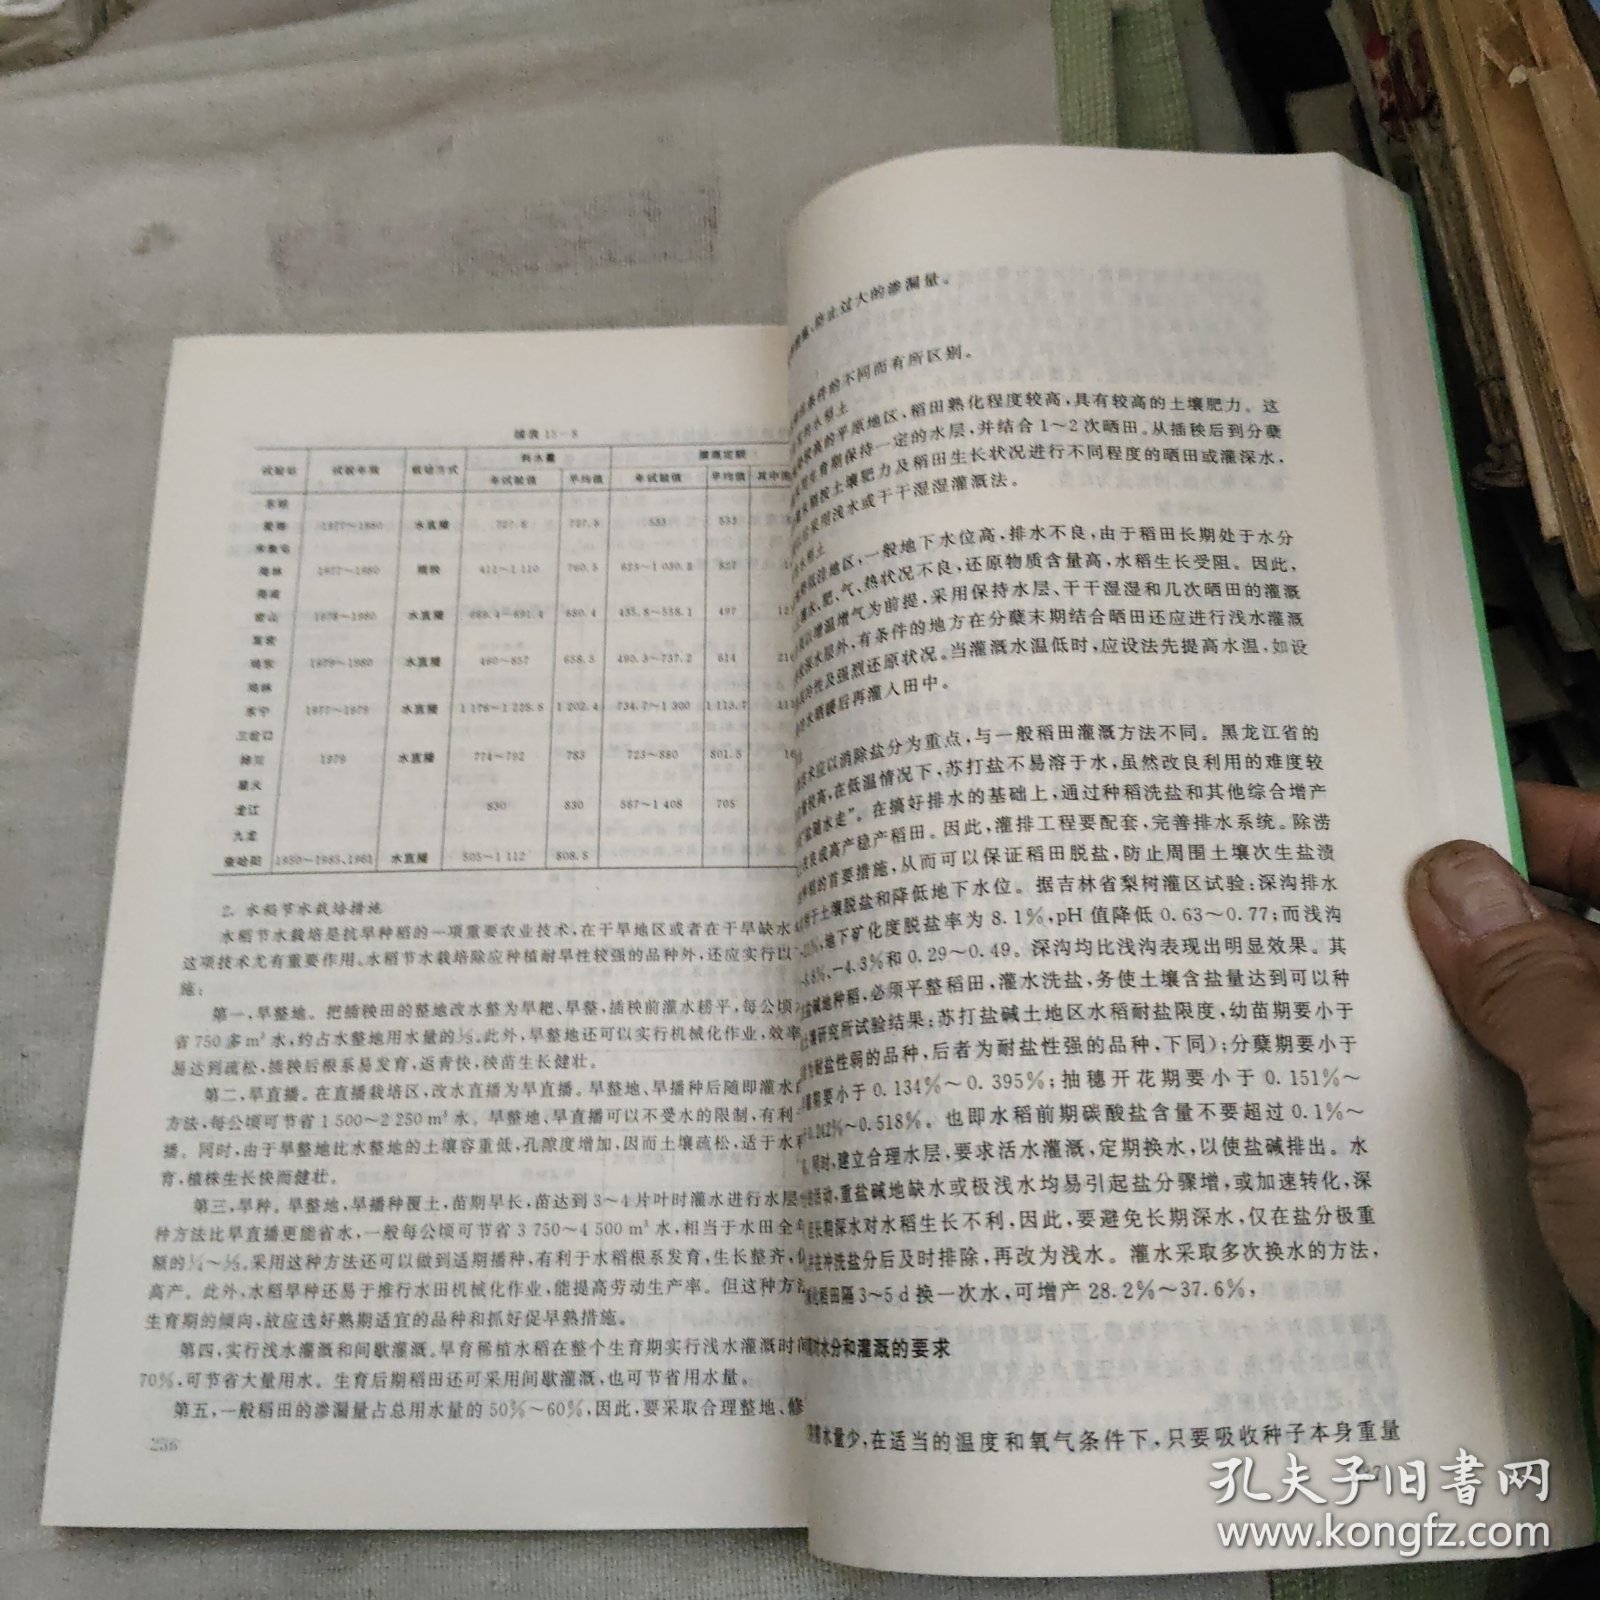 续表 15－8
试验站 试验年限 栽培方式 耗水量 灌溉定额
年试验值 平均值 年试验值 平均值
1977～1980 水直播 727.8 727.8 533 533
1977～1980 插秧 411～1 110 760.5 625～1 030.2 827
密山 1978～1980 水直播 669.4～691.4 680.4 435.8～558.1 497
鸡东 1979～1980 水直播 460～857 658.5 490.3～737.2 614
东宁 1977～1979 水直播 1 176～1 228.8 1 202.4 734.7～1 300 1 113.7
三岔口
1979 水直播 774～792 783 723～880 801.5
星火
龙江 830 830 567～1 408 705
九龙
查哈阳 水直播 505～1 112 808.5
2. 水稻节水栽培措施
水稻节水栽培是抗旱种稻的一项重要农业技术，在干旱地区或者在干旱缺水
这项技术尤有重要作用。水稻节水栽培除应种植耐旱性较强的品种外，还应实行以
施：
第一，旱整地。把插秧田的整地改水整为旱耙、旱整，插秧前灌水耢平，每公顷
省 750 多 m³ 水，约占水整地用水量的⅓。此外，旱整地还可以实行机械化作业，效率
易达到疏松，插秧后根系易发育，返青快，秧苗生长健壮。
第二，旱直播。在直播栽培区，改水直播为旱直播。旱整地、旱播种后随即灌水
方法，每公顷可节省 1 500～2 250 m³ 水。旱整地、旱直播可以不受水的限制，有利
播。同时，由于旱整地比水整地的土壤容重低，孔隙度增加，因而土壤疏松，适于水
育，植株生长快而健壮。
第三，旱种。旱整地，旱播种覆土，苗期旱长，苗达到 3～4 片叶时灌水进行水层
种方法比旱直播更能省水，一般每公顷可节省 3 750～4 500 m³ 水，相当于水田全
额的¼～⅓。采用这种方法还可以做到适期播种，有利于水稻根系发育，生长整齐，
高产。此外，水稻旱种还易于推行水田机械化作业，能提高劳动生产率。但这种方法
生育期的倾向，故应选好熟期适宜的品种和抓好促早熟措施。
第四，实行浅水灌溉和间歇灌溉。旱育稀植水稻在整个生育期实行浅水灌溉时间
70%，可节省大量用水。生育后期稻田还可采用间歇灌溉，也可节省用水量。
第五，一般稻田的渗漏量占总用水量的 50%～60%，因此，要采取合理整地、修
256
防止过大的渗漏量。
条件的不同而有所区别。
水稻土
较高的平原地区，稻田熟化程度较高，具有较高的土壤肥力。这
生育期保持一定的水层，并结合 1～2 次晒田。从插秧后到分蘖
按土壤肥力及稻田生长状况进行不同程度的晒田或灌深水，
采用浅水或干干湿湿灌溉法。
水稻土
低洼地区，一般地下水位高，排水不良，由于稻田长期处于水分
水、肥、气、热状况不良，还原物质含量高，水稻生长受阻。因此，
以增温增气为前提，采用保持水层、干干湿湿和几次晒田的灌溉
深水层外，有条件的地方在分蘖末期结合晒田还应进行浅水灌溉
冷性及强烈还原状况。当灌溉水温低时，应设法先提高水温，如设
水晒暖后再灌入田中。
技术应以消除盐分为重点，与一般稻田灌溉方法不同。黑龙江省的
量较高，在低温情况下，苏打盐不易溶于水，虽然改良利用的难度较
“盐随水走”。在搞好排水的基础上，通过种稻洗盐和其他综合增产
改良成高产稳产稻田。因此，灌排工程要配套，完善排水系统。除涝
种稻的首要措施，从而可以保证稻田脱盐，防止周围土壤次生盐渍
于土壤脱盐和降低地下水位。据吉林省梨树灌区试验：深沟排水
地下矿化度脱盐率为 8.1%，pH 值降低 0.63～0.77；而浅沟
－4.3%和 0.29～0.49。深沟均比浅沟表现出明显效果。其
盐碱地种稻，必须平整稻田，灌水洗盐，务使土壤含盐量达到可以种
研究所试验结果：苏打盐碱土地区水稻耐盐限度，幼苗期要小于
为耐盐性弱的品种，后者为耐盐性强的品种，下同）；分蘖期要小于
期要小于 0.134%～0.395%；抽穗开花期要小于 0.151%～
0.242%～0.518%。也即水稻前期碳酸盐含量不要超过 0.1%～
同时，建立合理水层，要求活水灌溉，定期换水，以使盐碱排出。水
活动，重盐碱地缺水或极浅水均易引起盐分骤增，或加速转化，深
长期深水对水稻生长不利，因此，要避免长期深水，仅在盐分极重
并在冲洗盐分后及时排除，再改为浅水。灌水采取多次换水的方法，
稻田隔 3～5 d 换一次水，可增产 28.2%～37.6%，
对水分和灌溉的要求
水量少，在适当的温度和氧气条件下，只要吸收种子本身重量
孔夫子旧书网
www.kongfz.com